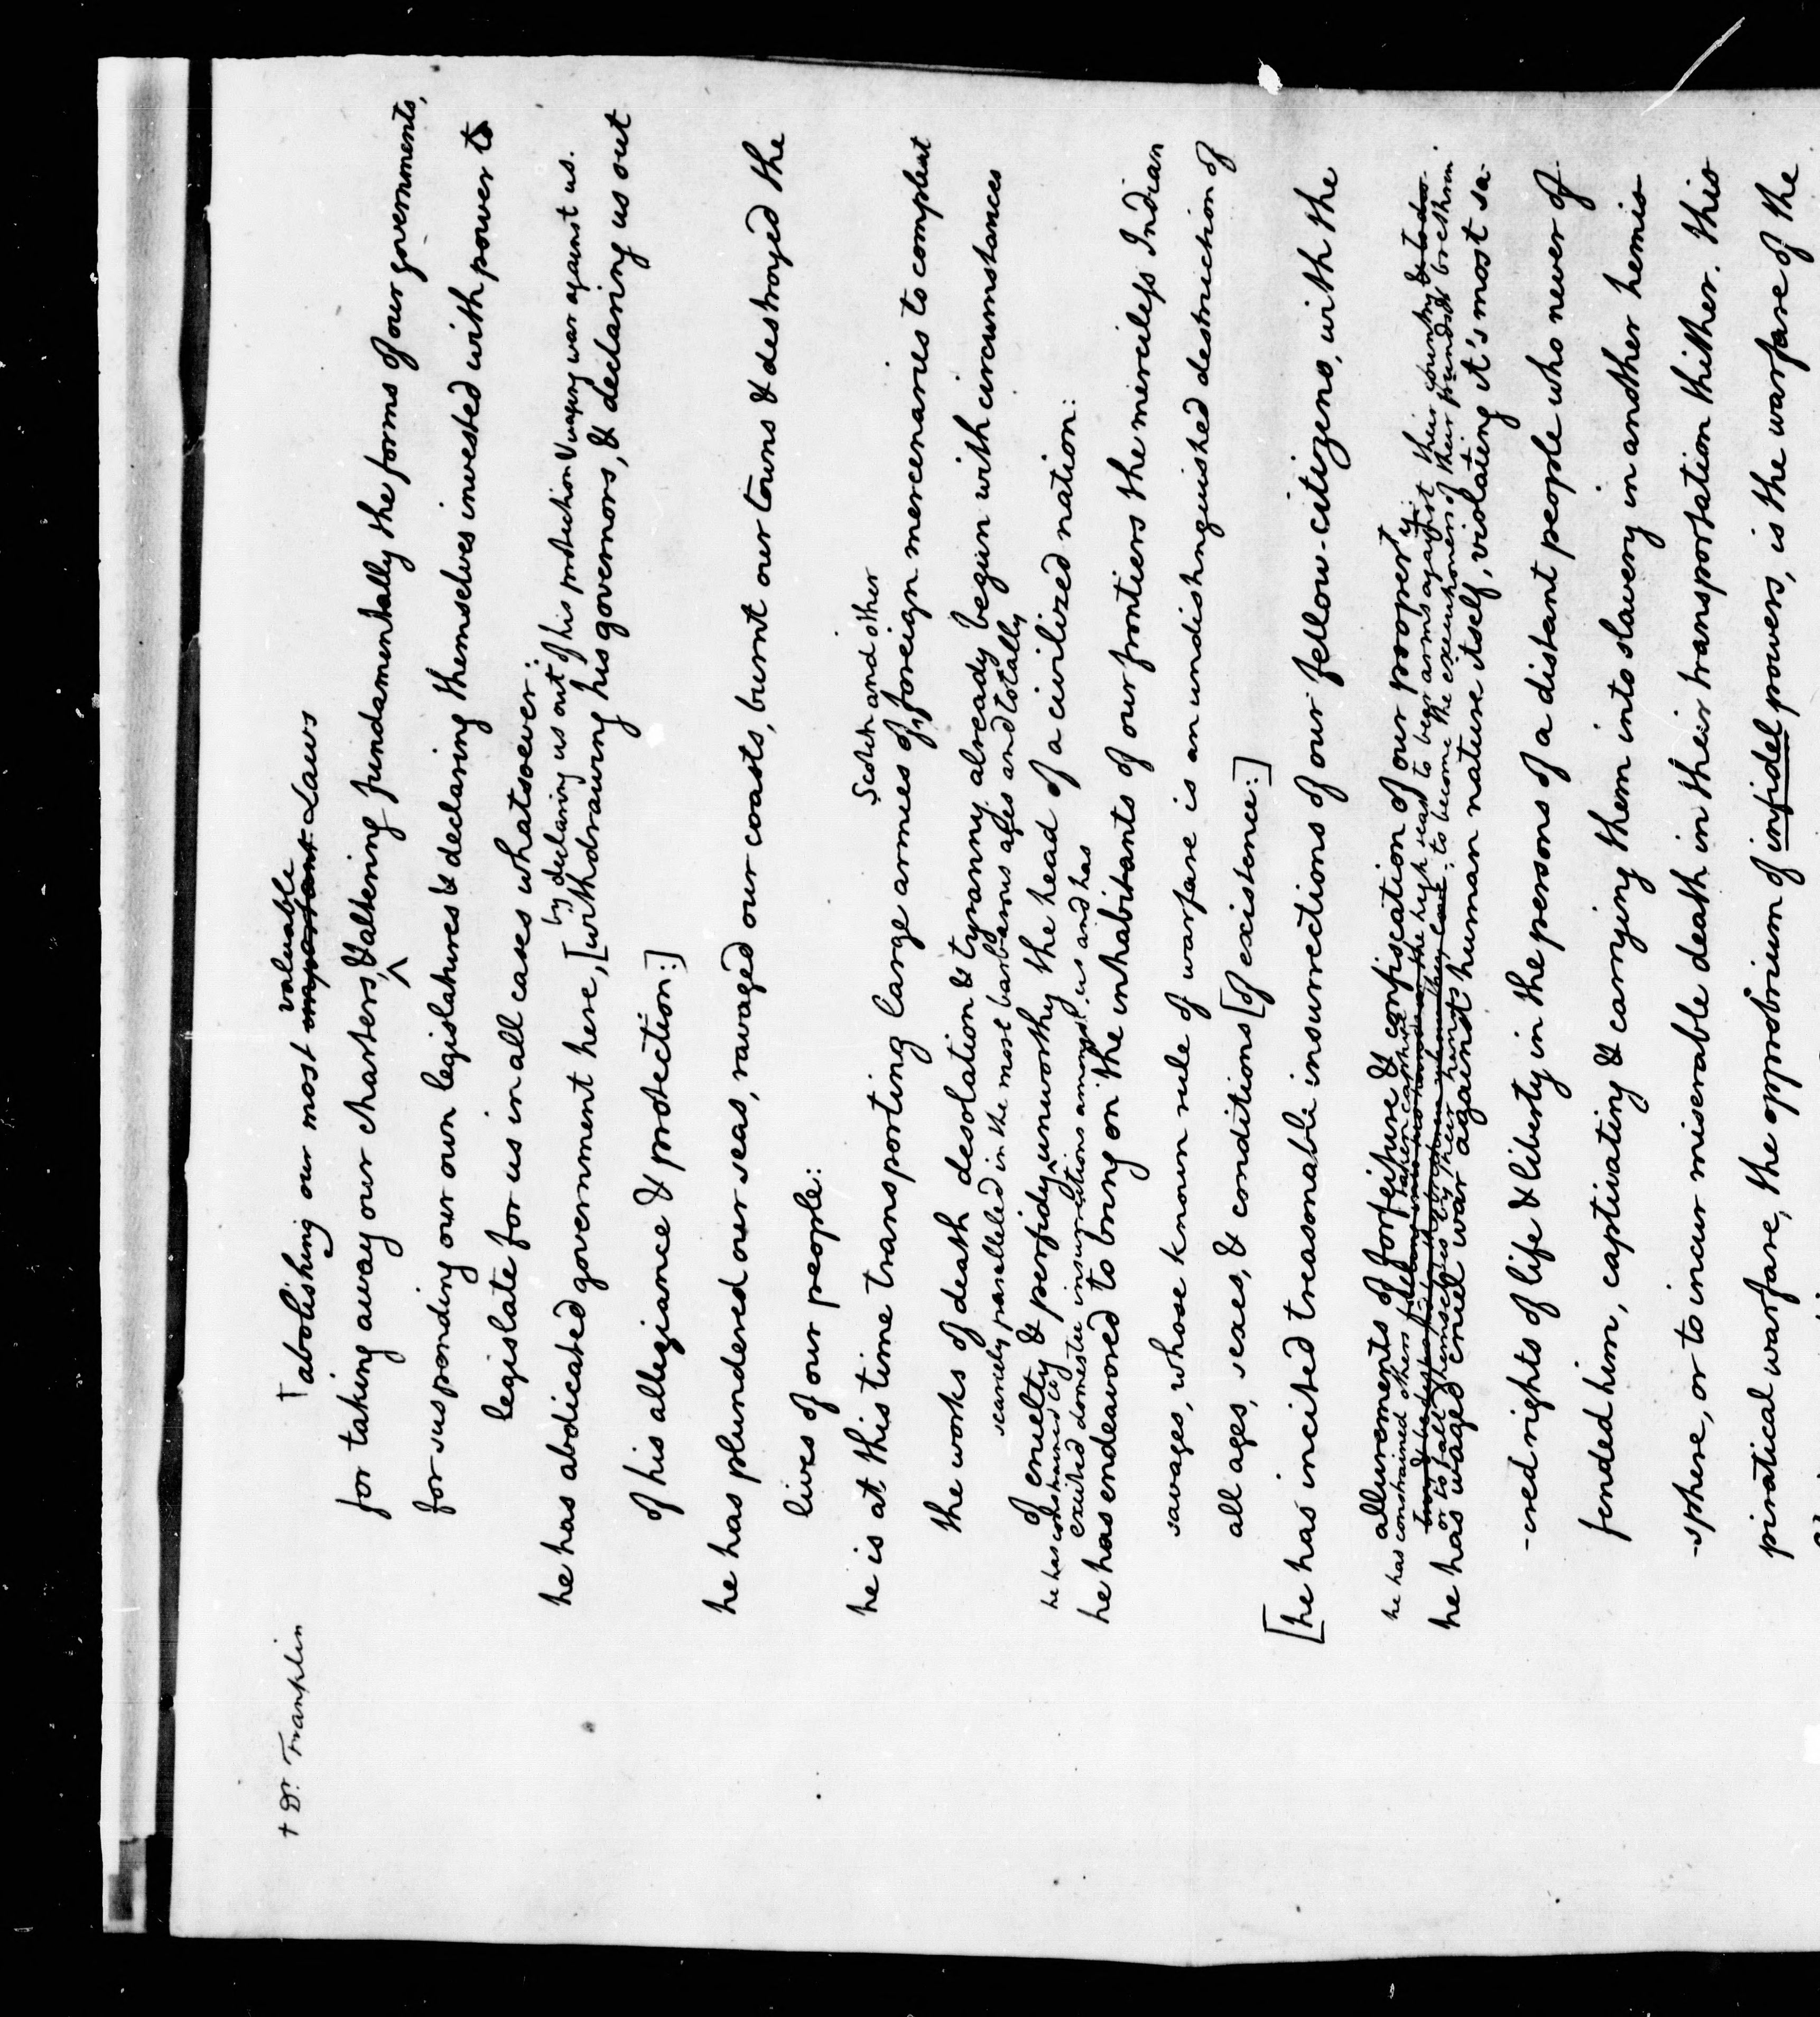 † Dr. Franklin
† abolishing our most important valuable Laws
for taking away our charters, & altering fundamentally the forms of our governments,
for suspending our own legislatures & declaring themselves invested with power to
legislate for us in all cases whatsoever:
by declaring us out of his protection & waging war against us.
he has abdicated government here, [withdrawing his governors, & declaring us out
of his allegiance & protection:]
he has plundered our seas, ravaged our coasts, burnt our towns & destroyed the
lives of our people:
Scotch and other
he is at this time transporting large armies of foreign mercenaries to compleat
the works of death desolation & tyranny already begun with circumstances
scarcely paralleled in the most barbarous ages and totally
of cruelty & perfidy unworthy the head of a civilized nation:
he has constrained
excited domestic insurrections amongst us and has
he has endeavored to bring on the inhabitants of our frontiers the merciless Indian
savages, whose known rule of warfare is an undistinguished destruction of
all ages, sexes, & conditions [of existence:]
[he has incited treasonable insurrections of our fellow-citizens, with the
allurements of forfeiture & confiscation of our property:
he has constrained others taken captive on the high seas to bear arms against their country & to des-
to become the executioners of their friends & brethren.
or to fall themselves by their hands
he has waged cruel war against human nature itself, violating it's most sa-
-cred rights of life & liberty in the persons of a distant people who never of
fended him, captivating & carrying them into slavery in another hemis
-sphere, or to incur miserable death in their transportation thither. this
piratical warfare, the opprobrium of infidel powers, is the warfare of the